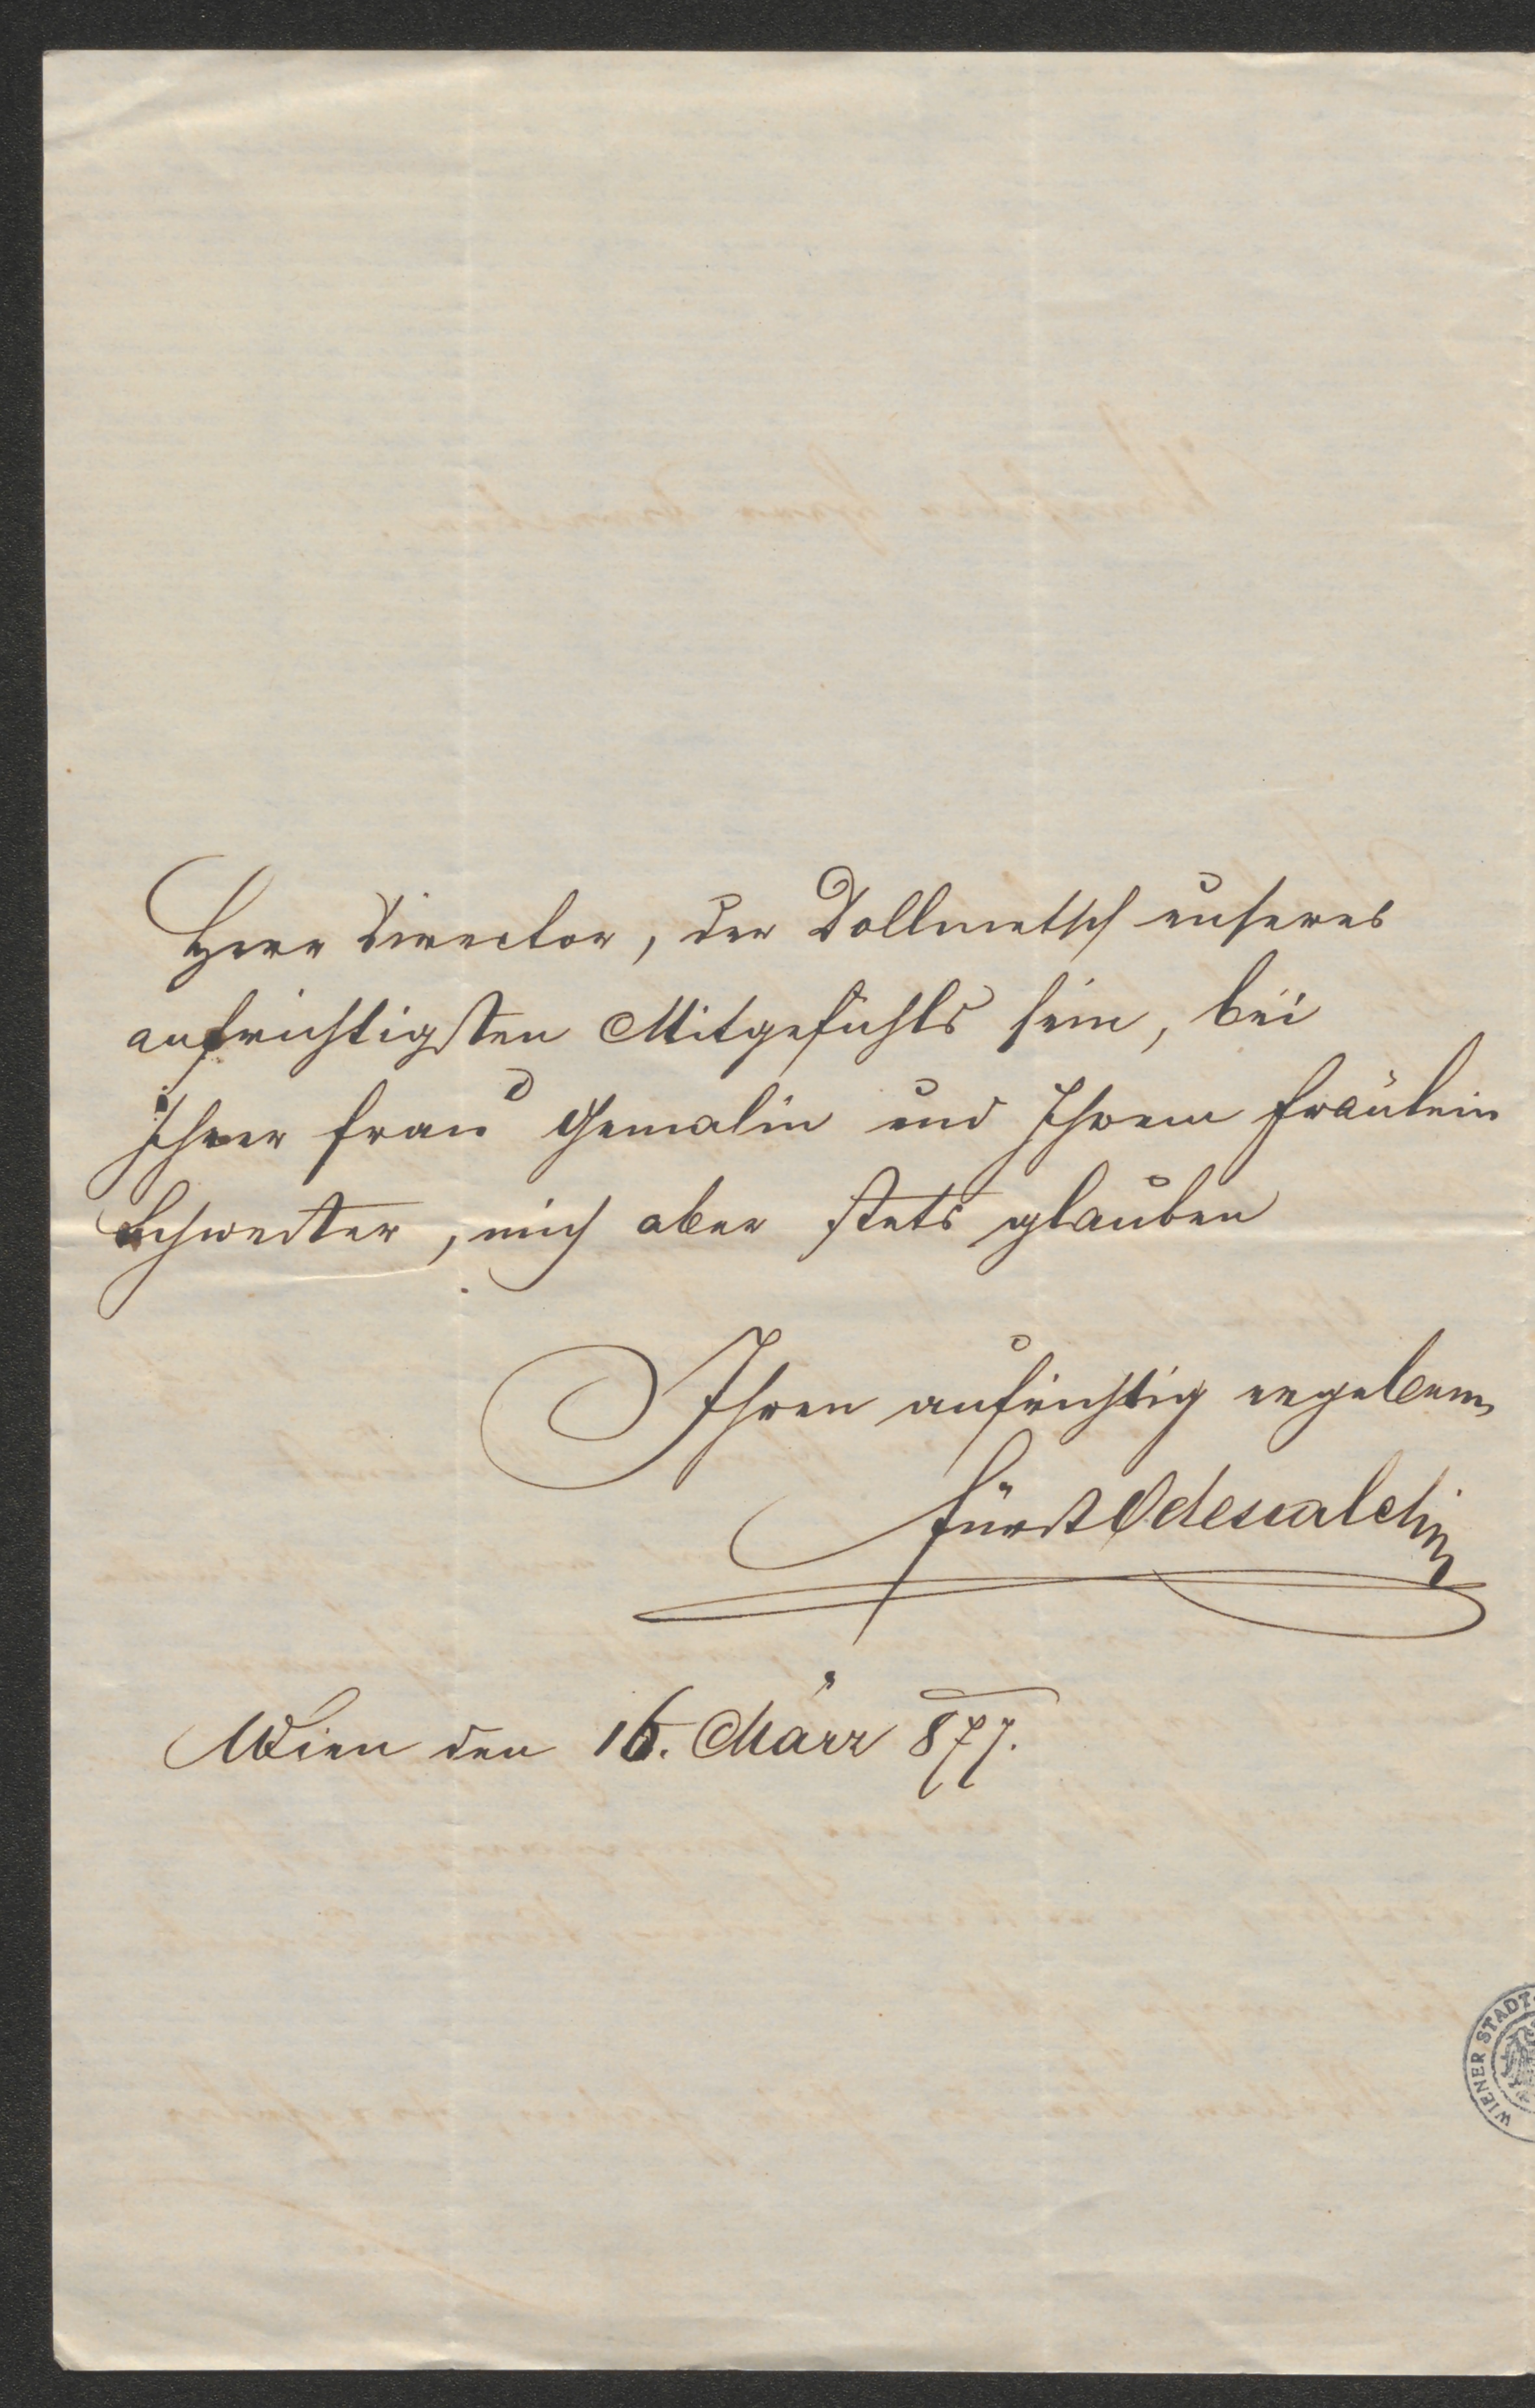 Herr Director, der Dollmetsch unseres
aufrichtigsten Mitgefühls sein, bei
Ihrer Frau Gemalin und Ihrem Fräulein
Schwester, mich aber stets glauben
Ihren aufrichtig ergebenen
Fürst Odescalchi
Wien den 16. März 877.
WIENER STADT-